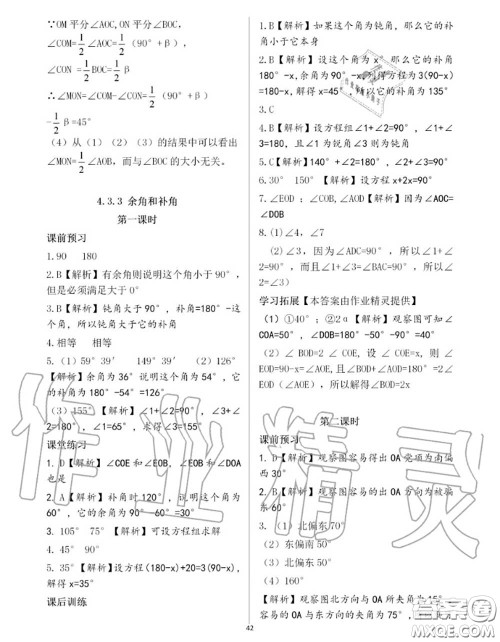 ∵OM 平分∠AOC,ON 平分∠BOC,
∠COM=1/2∠AOC=1/2(90°+β),
∠CON =1/2BOC=1/2β
∴∠MON=∠COM-∠CON=1/2(90°+β)
-1/2β=45°
(4)从(1)(2)(3)的结果中可以看出
∠MON=1/2∠AOB,而与∠BOC的大小无关。
4.3.3 余角和补角
第一课时
课前预习
1.90 180
2.B【解析】有余角则说明这个角小于90°,
但是必须满足大于0°
3.B【解析】钝角大于90°,补角=180°-这
个角,所以钝角大于它的补角
4.相等 相等
5.(1)59°39′ 149°39′(2)126°
【解析】余角为36°说明这个角为54°,它
的补角为180°-54°=126°
(3)155°【解析】∠1+∠2=90°,∠3+∠
2=180°,∠1=65°,求得∠3=155°
课堂练习
1.D【解析】∠COE和∠EOB、∠EOB和∠DOA
也是
2.A【解析】补角时120°,说明这个角为
60°,它的余角为90°-60°=30°
3.105° 75°【解析】可设方程组求解
4.45° 90°
5.35°【解析】设方程(180-x)+20=3(90-x),
解得x=35°
课后训练
1.B【解析】如果这个角为钝角,那么它的补
角小于它本身
2.B【解析】设这个角为x°那么它的补角
180°-x,余角为90°-x,列得方程为3(90-x)
=180-x,解得x=45°,所以它的补角为135°
3.C
4.B【解析】设方程组∠1+∠2=90°,∠1+∠
3=180,且∠1为锐角∠3则为钝角
5.C【解析】140°+∠2=180°,∠2+∠3=90°
6.30° 150°【解析】设方程x+2x=90°
7.∠EOD :∠EOB,∠AOD【解析】因为∠AOC=
∠DOB
8.(1)∠4,∠7
(2)∠3,因为∠ADC=90°,所以∠1+∠
2=90°,而且∠1+∠3=∠BAC=90°,所以∠
2=∠3
学习拓展【本答案由作业精灵提供】
(1)①40°;②2α【解析】观察图可知∠
COA=50°,∠DOB=180°-50°-90°=40°
(2)∠ BOD=2 ∠ COE, 设∠ EOD=x, 则∠
EOD=90-x=∠EOA(平分线),然而∠EOD=2x+
∠EOD(∠AOE),所以解得∠EOD=2x
第二课时
课前预习
1.B【解析】观察图容易得出OA方向为南偏
西30°
2.B【解析】观察图容易的出OA方向为被偏
东60°
3.(1)北偏东70°
(2)东偏南50°
(4)160°
【解析】观察图北方向与OA所夹角为75°,
容易的OA与东方向的夹角为75°,
42
作业精灵